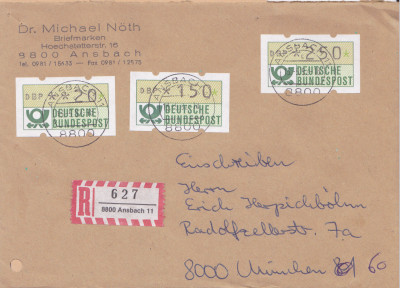 Dr. Michael Nöth
Briefmarken
Hoechstetterstr. 16
8800 Ansbach
DBP *20
DEUTSCHE
BUNDESPOST
8800
DBP *150
DEUTSCHE
BUNDESPOST
8800
*250
DEUTSCHE
BUNDESPOST
8800
R 627
8800 Ansbach 11
Einschreiben
Herrn
Erich Herpichböhm
Radolfzellerstr. 7a
8000 München 60